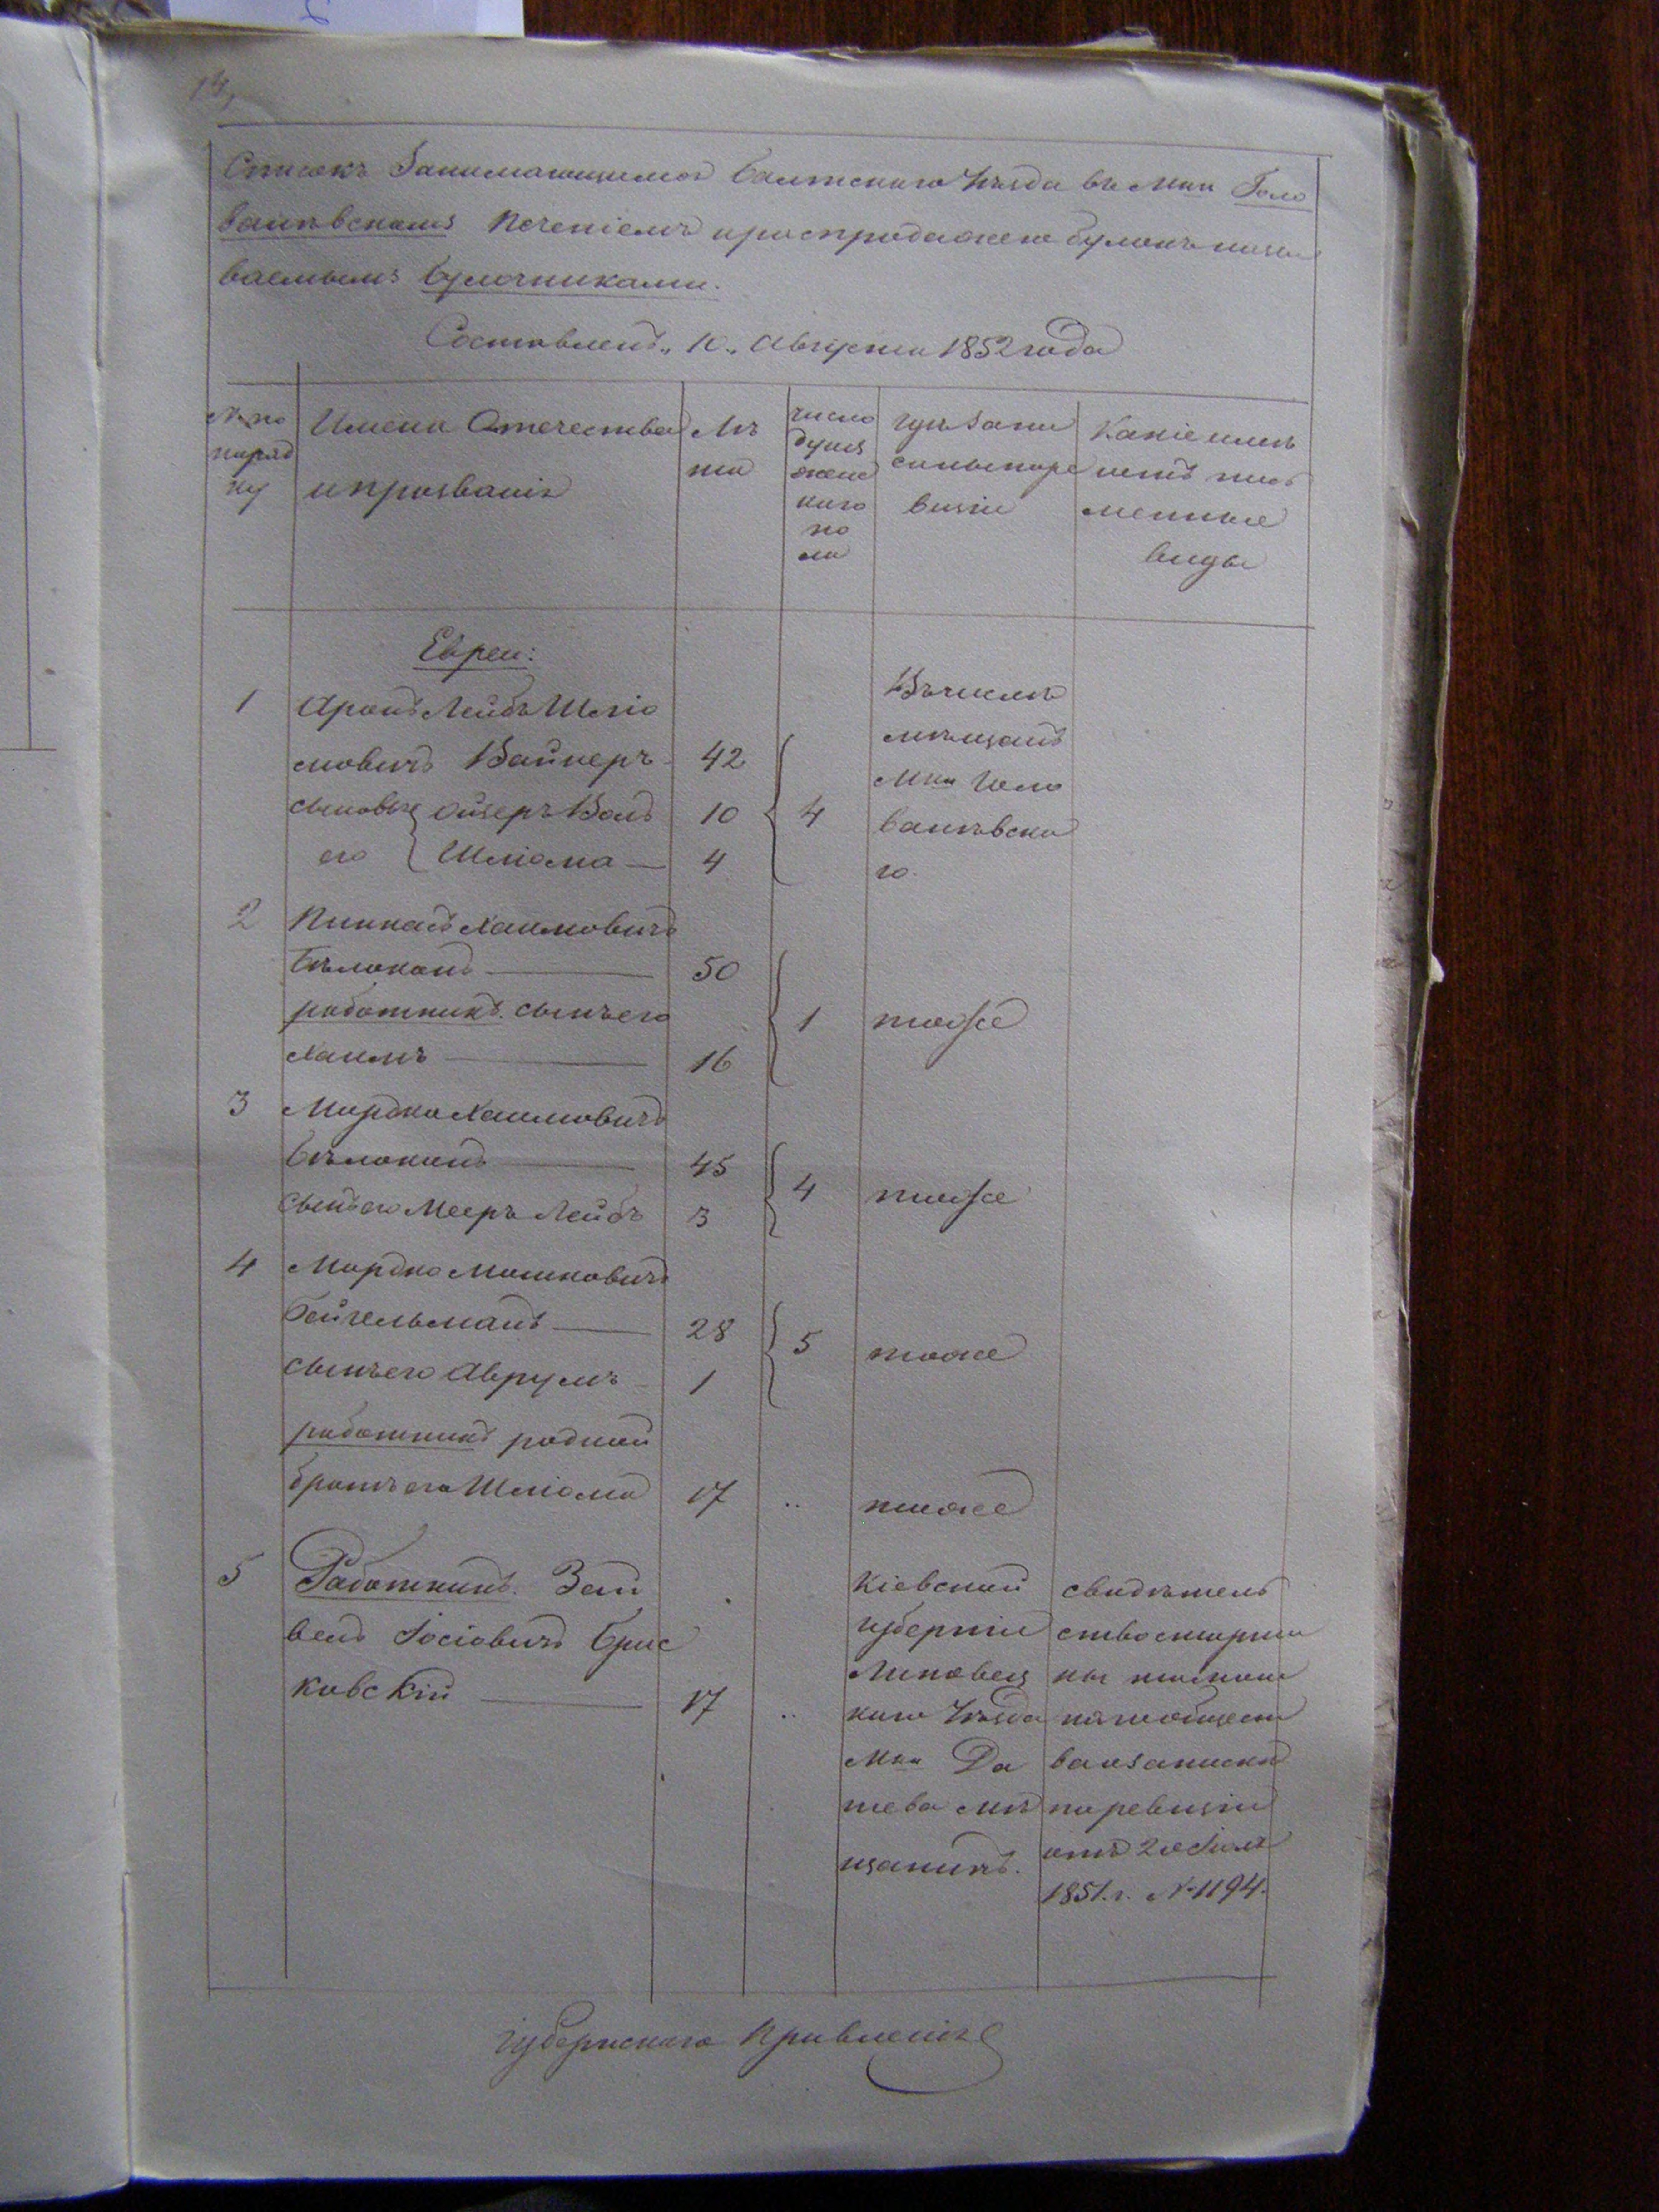 Списокъ Занимающимся Балтскаго Уѣзда въ Мки Голо
ванѣвскомъ Печеніемъ и роспродажею булокъ назы
ваемымъ булочниками.
Составленъ „10„ Августа 1852 года
№ по
поряд
ку
Имена Отечества
и прозванія
Лѣ
та
число
душъ
женс
каго
по
ла
гдѣ запи
саны по ре
визіи
Какіе имѣ
ютъ пись
менные
виды
Евреи:
1 Аронъ Лейбъ Шліо
мовичъ Вайнеръ 42
сыновья его Ойзеръ Волъ 10
Шліома — 4
4
Въ числѣ
мѣщанъ
Мка Голо
ванѣвска
го.
2 Пинкасъ Хаимовичъ
Бѣлоконъ — 50
работникъ. сынъ его
Хаимъ — 16
1 тоже
3 Мордко Хаимовичъ
Бѣлоконъ — 45
сынъ его Мееръ Лейбъ 3
4 тоже
4 Мордко Мошковичъ
Бейгельманъ — 28
сынъ его Аврумъ — 1
5 тоже
работникъ родной
братъ его Шліома 17 „ тоже
5 Работникъ. Зей
велъ Іосіовичъ Брис
ковскій — 17 „
Кіевской
губерніи
Липовец
каго Уѣзда
Мка Да
шева мѣ
щанинъ.
свидѣтель
ство старши
ны
ва о запискѣ
по ревизіи
отъ 20 Іюля
1851. г. №1194.
Губернскаго Правленія